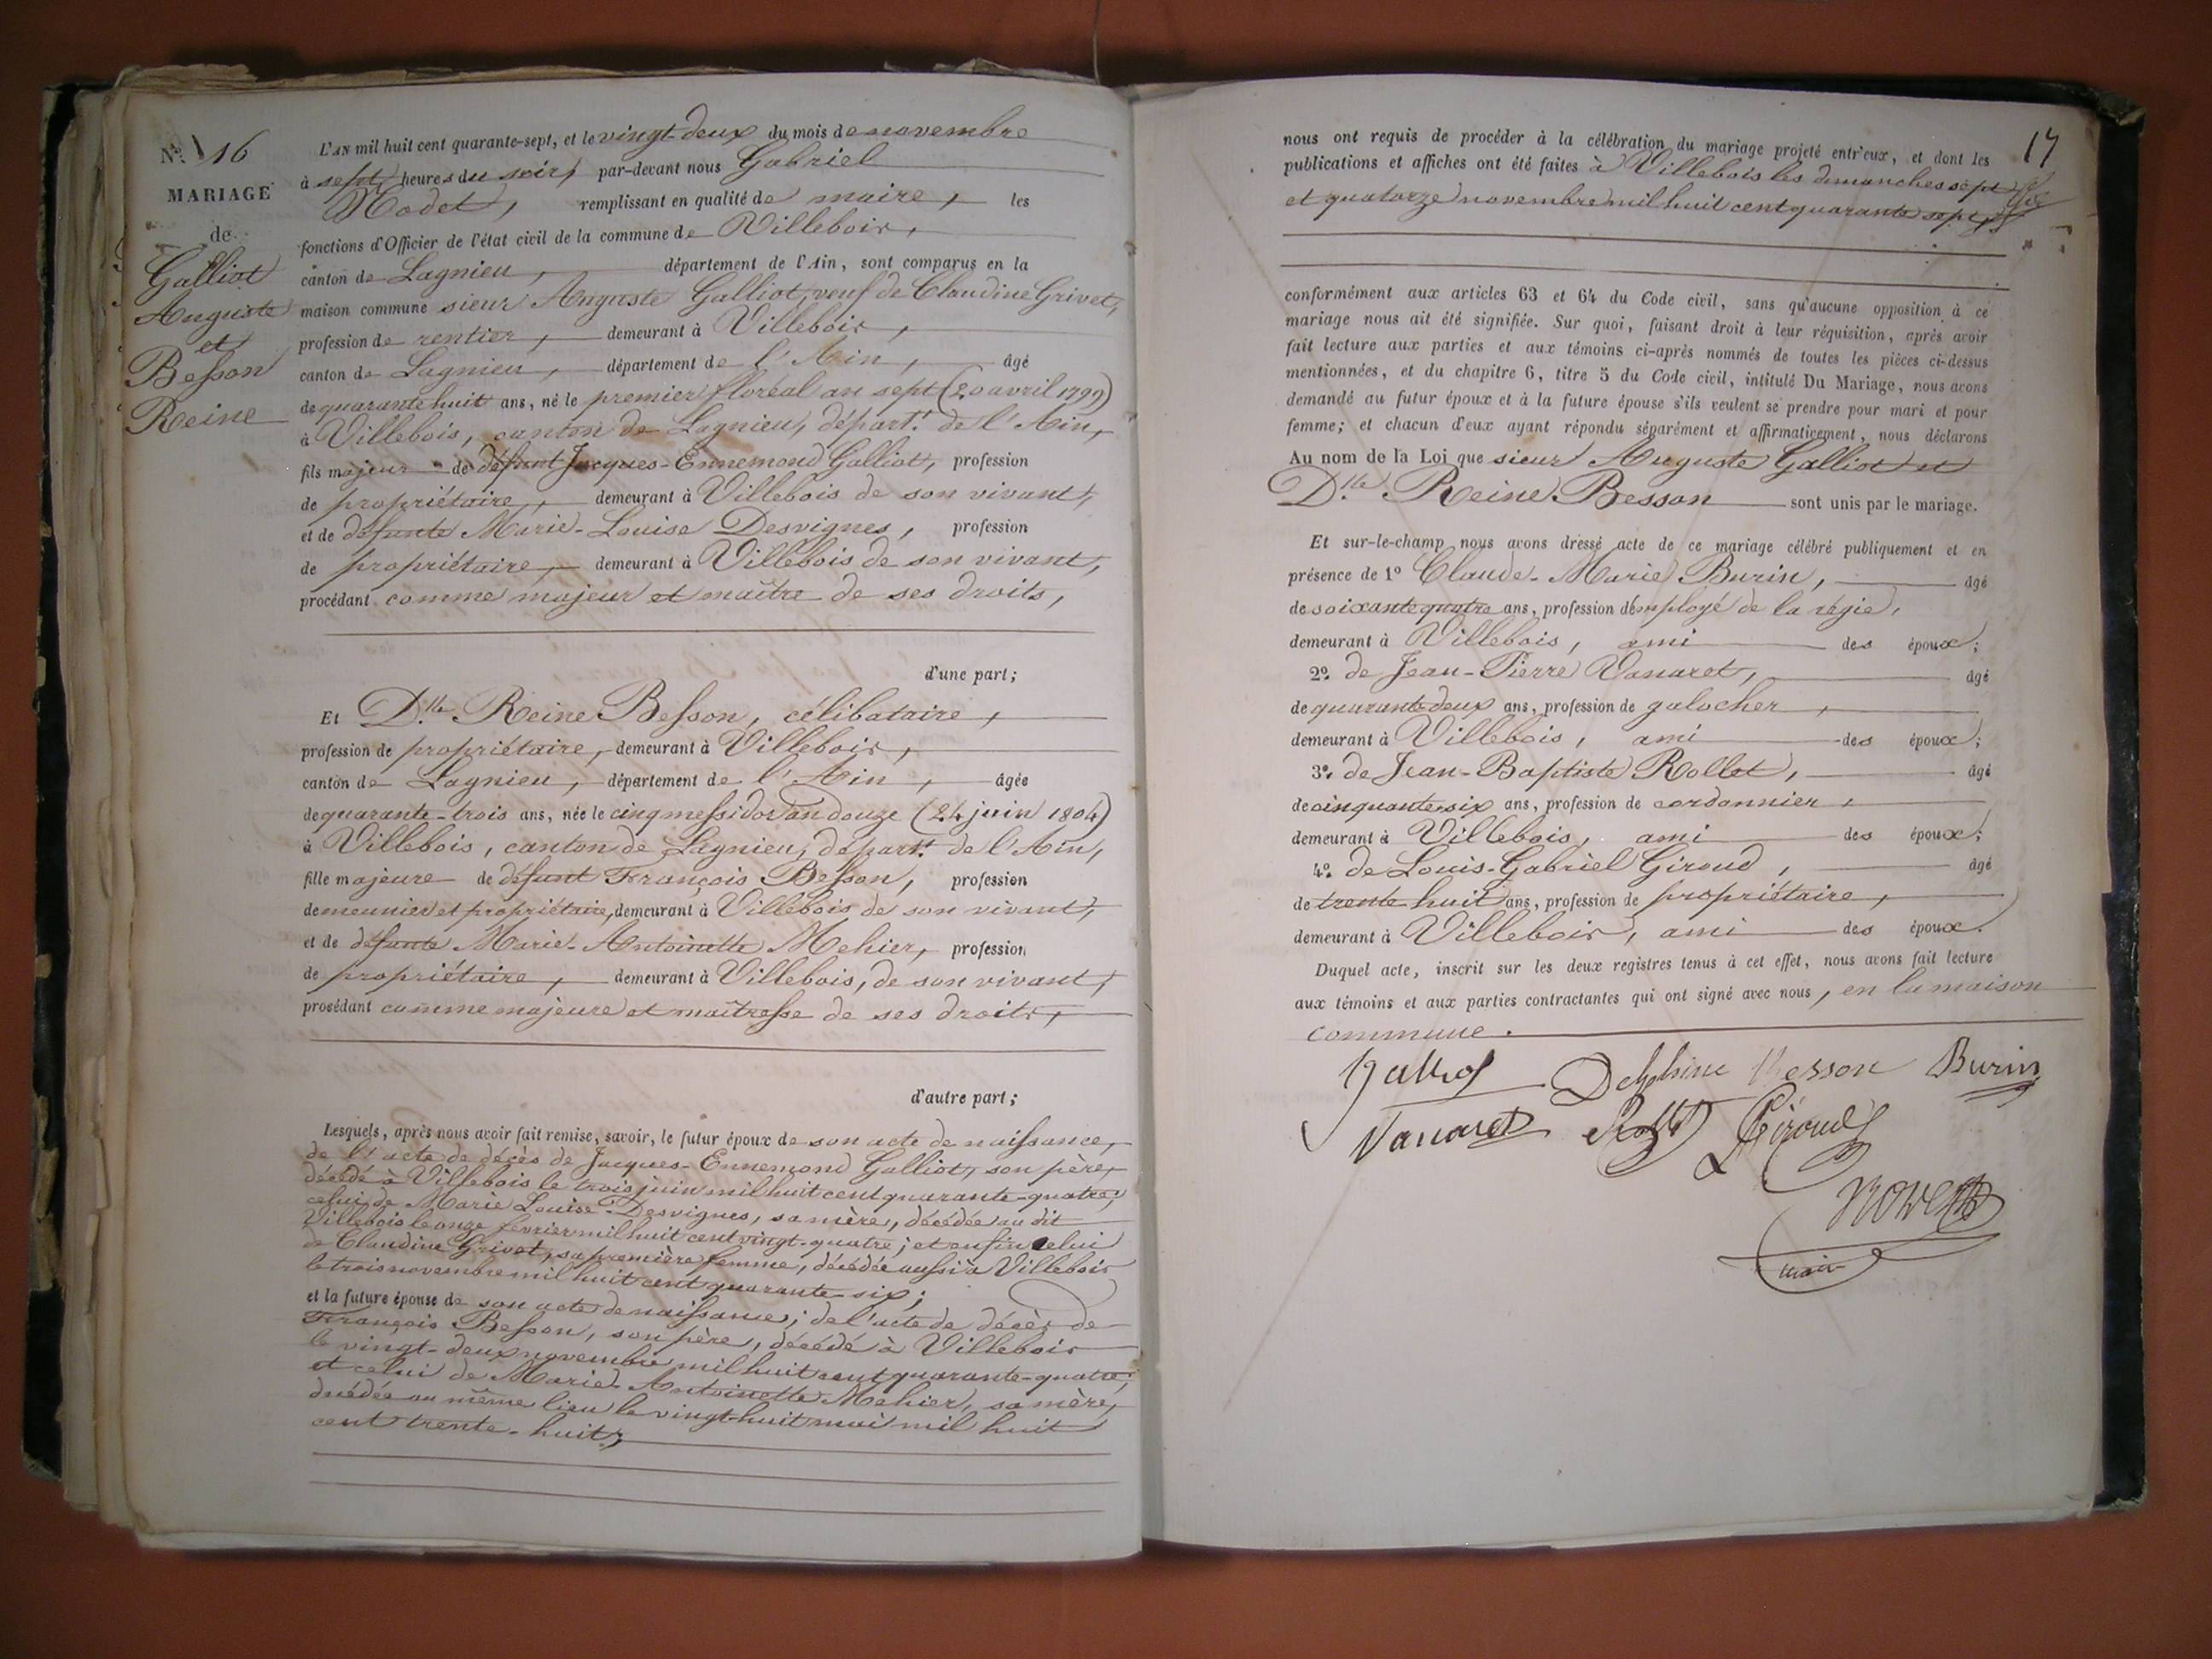 N.° 16
MARIAGE
de
Galliot
Auguste
et
Besson
Reine
L'AN mil huit cent quarante-sept, et le vingt-deux du mois de novembre
à sept heures du soir, par-devant nous Gabriel
Rodet, remplissant en qualité de maire, les
fonctions d'Officier de l'état civil de la commune de Villebois,
canton de Lagnieu, département de l'Ain, sont comparus en la
maison commune sieur Auguste Galliot, veuf de Claudine Grivet,
profession de rentier, demeurant à Villebois,
canton de Lagnieu, département de l'Ain, âgé
de quarante huit ans, né le premier floréal an sept (20 avril 1799)
à Villebois, canton de Lagnieu, départ.t de l'Ain,
fils majeur de défunt Jacques-Ennemond Galliot, profession
de propriétaire, demeurant à Villebois de son vivant,
et de défunte Marie-Louise Desvignes, profession
de propriétaire, demeurant à Villebois de son vivant,
procédant comme majeur et maître de ses droits,
d'une part;
Et D.lle Reine Besson, célibataire,
profession de propriétaire, demeurant à Villebois,
canton de Lagnieu, département de l'Ain, âgée
de quarante-trois ans, née le cinq messidor an douze (24 juin 1804)
à Villebois, canton de Lagnieu, départ.t de l'Ain,
fille majeure de défunt François Besson, profession
de meunier et propriétaire, demeurant à Villebois de son vivant,
et de défunte Marie-Antoinette Mehier, profession
de propriétaire, demeurant à Villebois, de son vivant,
procédant comme majeure et maîtresse de ses droits,
d'autre part;
Lesquels, après nous avoir fait remise, savoir, le futur époux de son acte de naissance,
de l'acte de décès de Jacques-Ennemond Galliot, son père,
décédé à Villebois le trois juin mil huit cent quarante-quatre;
celui de Marie Louise Desvignes, sa mère, décédée au dit
Villebois le onze février mil huit cent vingt-quatre; et enfin celui
de Claudine Grivet, sa première femme, décédée aussi à Villebois
le trois novembre mil huit cent quarante-six;
et la future épouse de son acte de naissance; de l'acte de décès de
François Besson, son père, décédé à Villebois
le vingt-deux novembre mil huit cent quarante-quatre;
et celui de Marie-Antoinette Mehier, sa mère,
décédée au même lieu le vingt-huit mai mil huit
cent trente-huit,
17
nous ont requis de procéder à la célébration du mariage projeté entr'eux, et dont les
publications et affiches ont été faites à Villebois les dimanches sept
et quatorze novembre mil huit cent quarante sept,
conformément aux articles 63 et 64 du Code civil, sans qu'aucune opposition à ce
mariage nous ait été signifiée. Sur quoi, faisant droit à leur réquisition, après avoir
fait lecture aux parties et aux témoins ci-après nommés de toutes les pièces ci-dessus
mentionnées, et du chapitre 6, titre 5 du Code civil, intitulé Du Mariage, nous avons
demandé au futur époux et à la future épouse s'ils veulent se prendre pour mari et pour
femme; et chacun d'eux ayant répondu séparément et affirmativement, nous déclarons
Au nom de la Loi que sieur Auguste Galliot et
D.lle Reine Besson sont unis par le mariage.
Et sur-le-champ nous avons dressé acte de ce mariage célébré publiquement et en
présence de 1° Claude-Marie Burin, âgé
de soixante quatre ans, profession d'employé de la régie,
demeurant à Villebois, ami des époux;
2° de Jean-Pierre Vanaret, âgé
de quarante deux ans, profession de galocher,
demeurant à Villebois, ami des époux;
3° de Jean-Baptiste Rollet, âgé
de cinquante-six ans, profession de cordonnier,
demeurant à Villebois, ami des époux;
4° de Louis-Gabriel Giroud, âgé
de trente huit ans, profession de propriétaire,
demeurant à Villebois, ami des époux.
Duquel acte, inscrit sur les deux registres tenus à cet effet, nous avons fait lecture
aux témoins et aux parties contractantes qui ont signé avec nous, en la maison
commune.
Galliot Delphine Besson Burin
Vanaret Rollet Giroud
maire